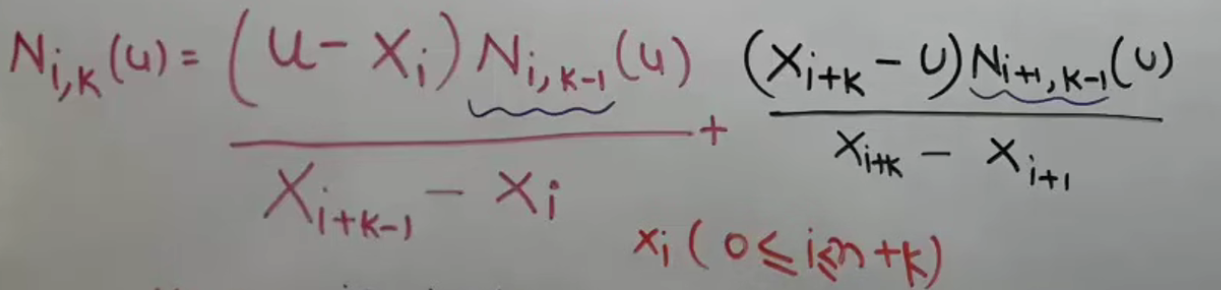 N_{i,k}(u) = \frac{(u - x_i) N_{i,k-1}(u)}{x_{i+k-1} - x_i} + \frac{(x_{i+k} - u) N_{i+1,k-1}(u)}{x_{i+k} - x_{i+1}}
x_i (0 ≤ i ≤ n + k)